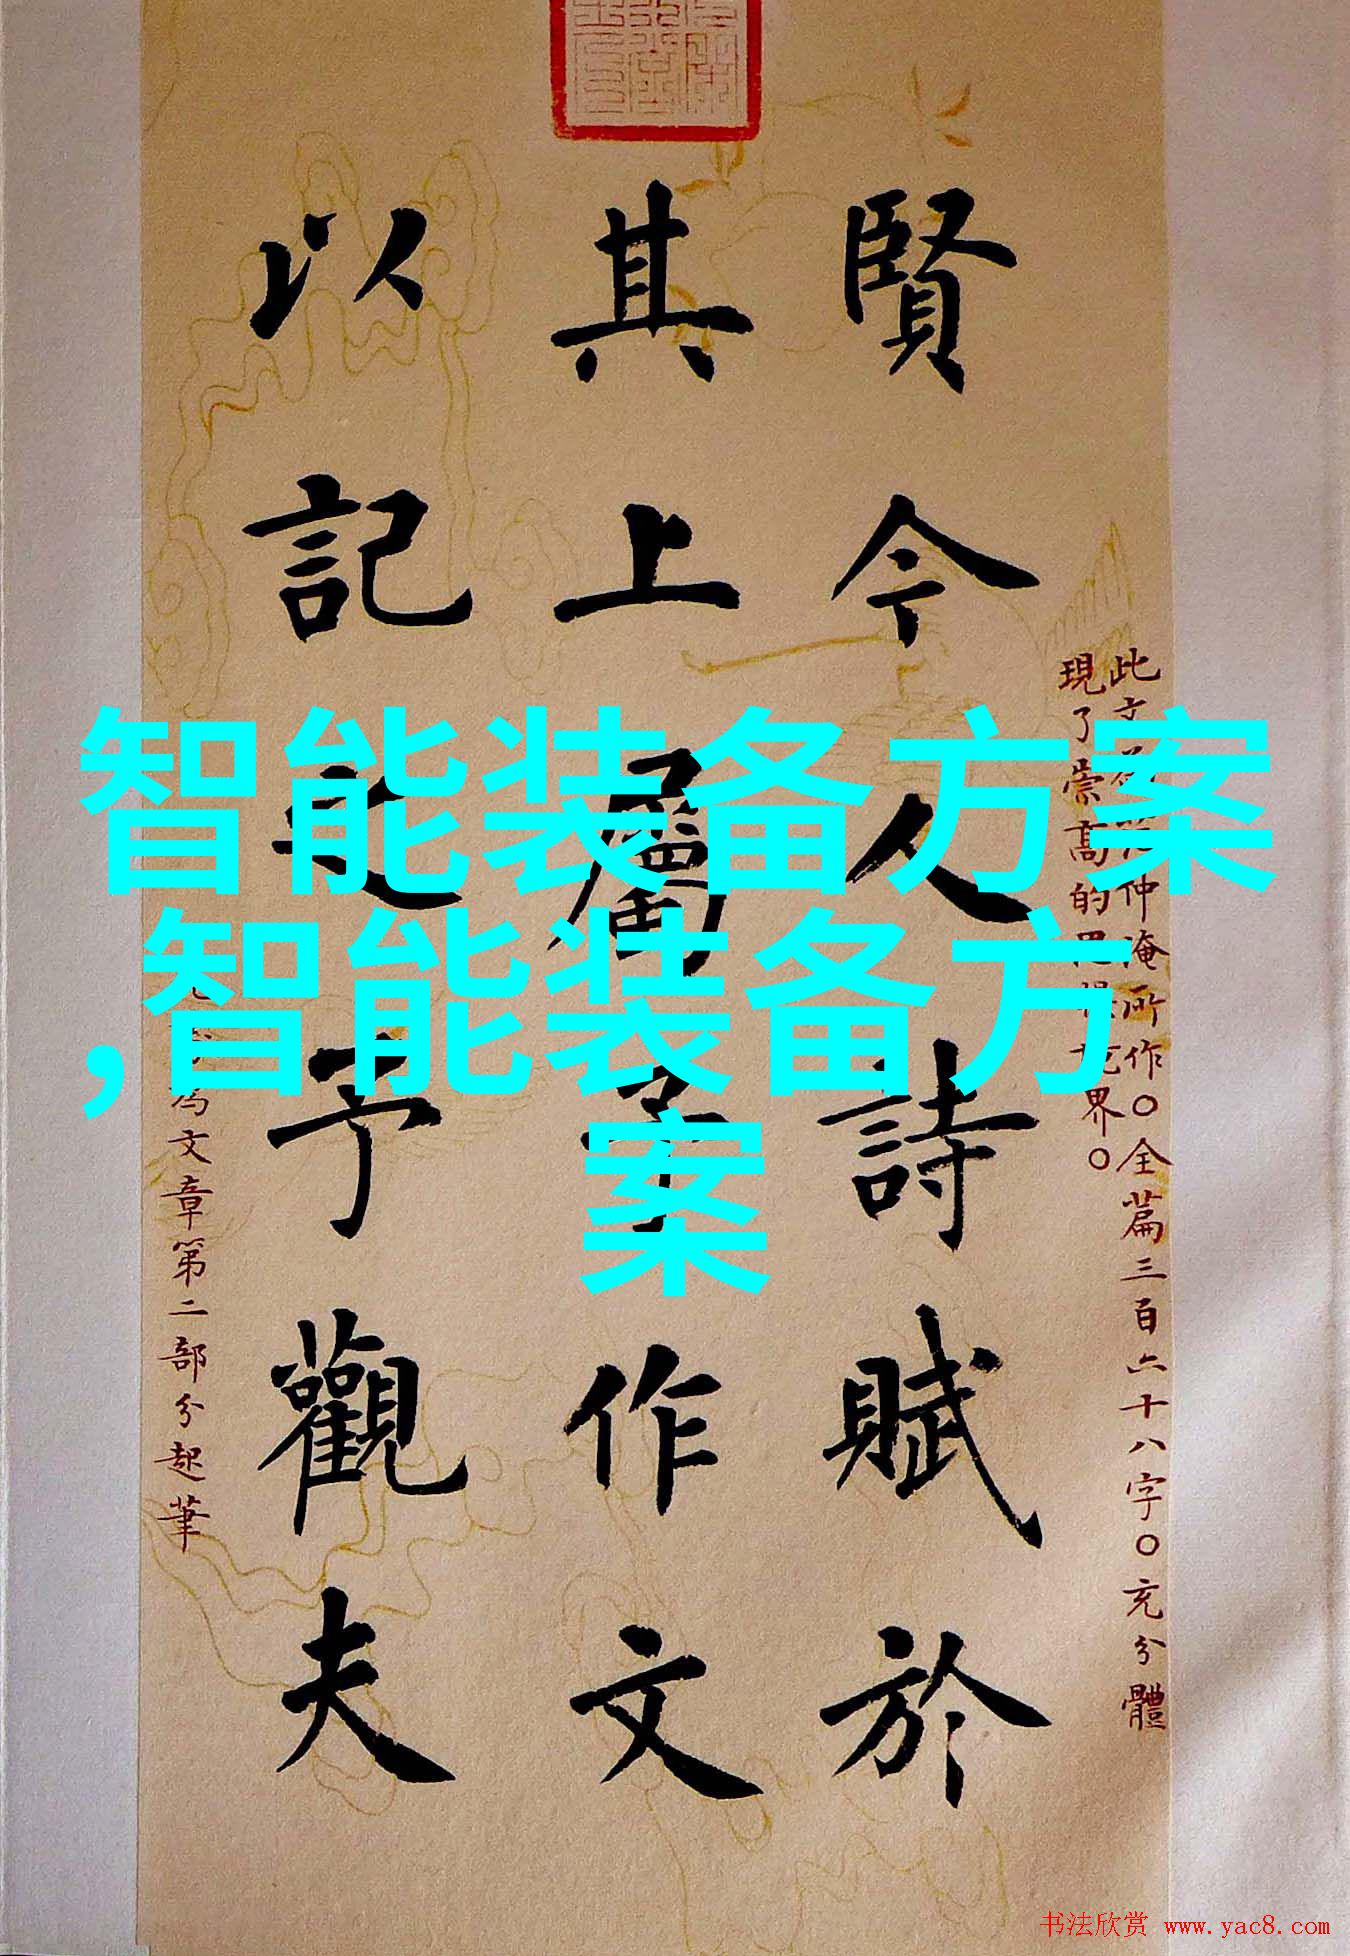 此文仲淹所作〇全篇三百六十八字〇充分體
現了崇高的界〇
賢今人詩賦於
其上屬予作文
以記之予觀夫
為文章第二部分起筆
智能装备方案
,智能装备方
案
书法欣赏 www.yac8.com